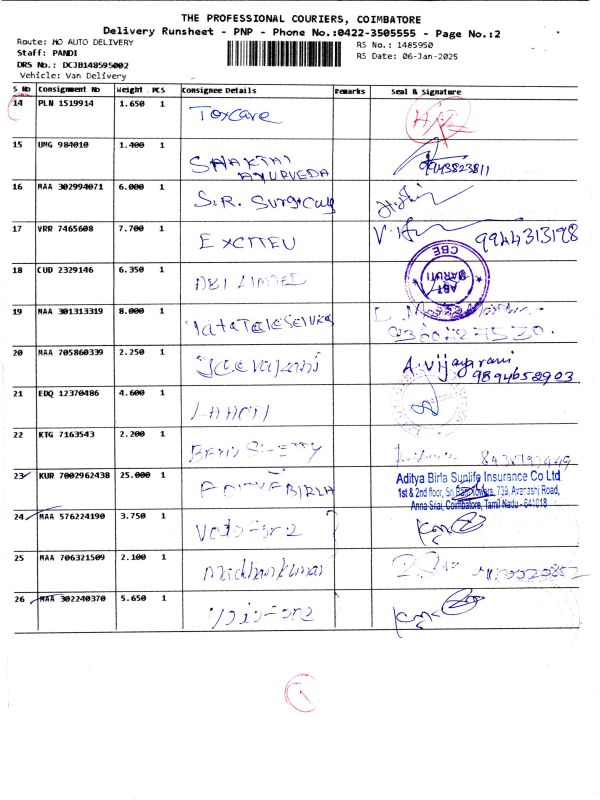 THE PROFESSIONAL COURIERS, COIMBATORE
Delivery Runsheet - PNP - Phone No.:0422-3505555 - Page No.:2
Route: HO AUTO DELIVERY
RS No.: 1485950
Staff: PANDI
RS Date: 06-Jan-2025
DRS No.: DCJB148595002
Vehicle: Van Delivery
S No Consignment No Weight PCS Consignee Details Remarks Seal & Signature
14 PLN 1519914 1.650 1 Toxcare
15 UMG 984010 1.400 1 SHAKTHI AYURVEDA 9943823811
16 MAA 302994071 6.000 1 S.R. Surgical
17 VRR 7465608 7.700 1 EXCITEU 9944313198
18 CUD 2329146 6.350 1 LIMITED ABT MARUTI CBE
19 MAA 301313319 8.000 1 Tata Teleservices
20 MAA 705860339 2.250 1 Jeevajani A.vijayarani 9894658903
21 EDQ 12370486 4.600 1 LAHOTI
22 KTG 7163543 2.200 1
23 KUR 7002962438 25.000 1 ADITYA BIRLA Aditya Birla Sunlife Insurance Co Ltd.
1st & 2nd floor, Sri Towers, 739, Avanashi Road,
Anna Silai, Coimbatore, Tamil Nadu - 641018
24 MAA 576224190 3.750 1 Vodafone
25 MAA 706321509 2.100 1 Madhankumar
26 MAA 302240370 5.650 1 Vodafone